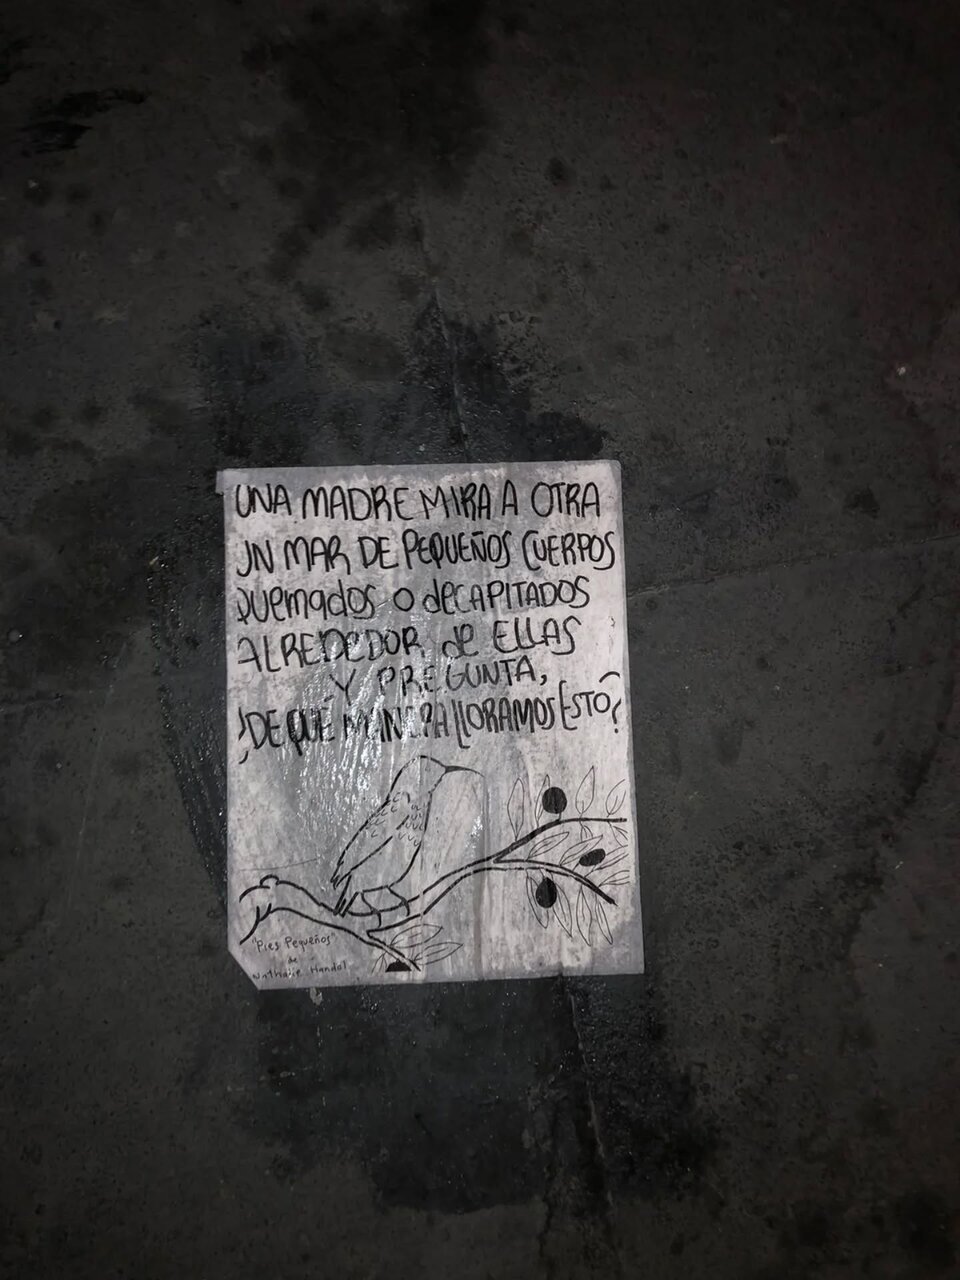 UNA MADRE MIRA A OTRA
UN MAR DE PEQUEÑOS CUERPOS
QUEMADOS O DECAPITADOS
ALREDEDOR de ELLAS
Y PREGUNTA,
¿DE QUÉ MANERA LLORAMOS ESTO?
"Pies Pequeños"
de
Nathalie Handal